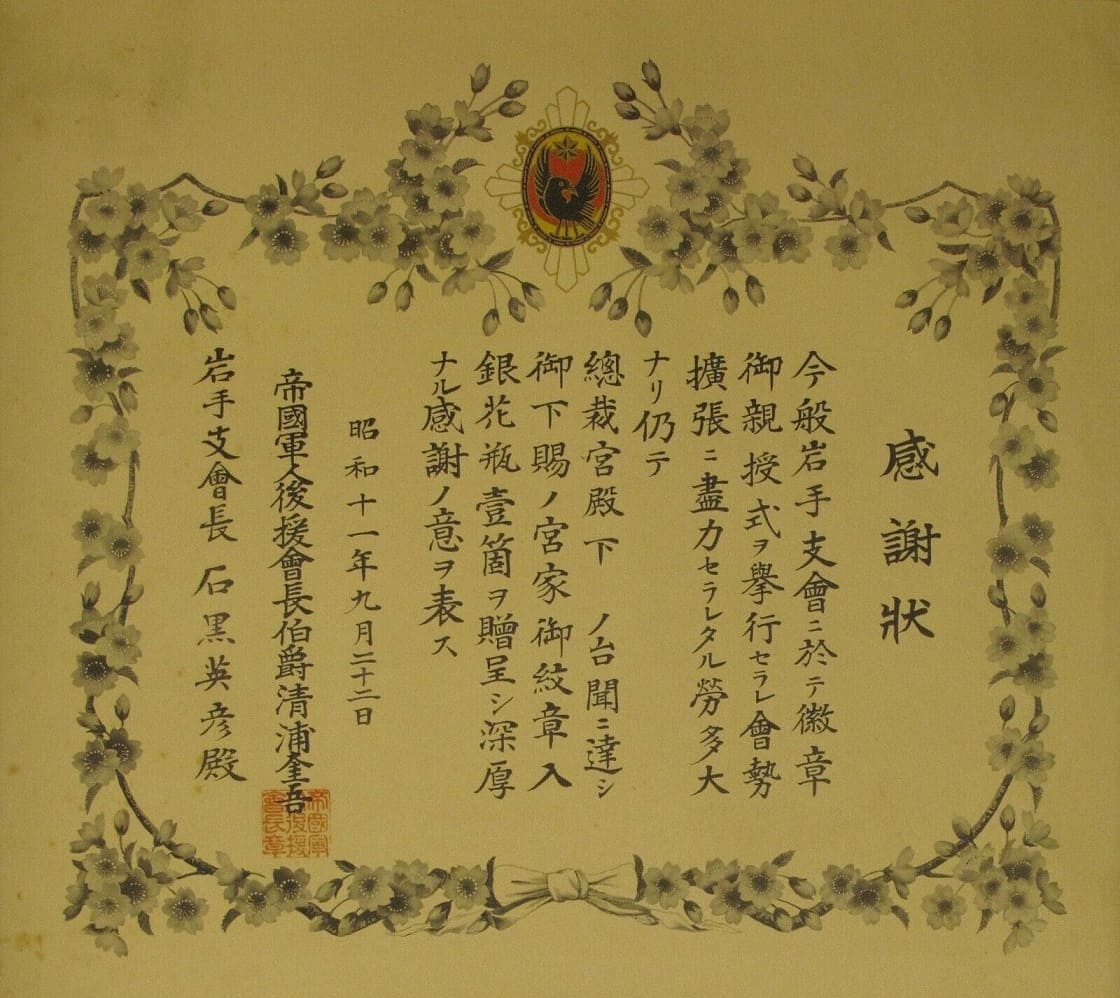 感謝狀
今般岩手支會ニ於テ徽章
御親授式ヲ擧行セラレ會勢
擴張ニ盡力セラレタル勞多大
ナリ仍テ
總裁宮殿下ノ台聞ニ達シ
御下賜ノ宮家御紋章入
銀花瓶壹箇ヲ贈呈シ深厚
ナル感謝ノ意ヲ表ス
昭和十一年九月二十二日
帝國軍人後援會長伯爵清浦奎吾
帝國軍
人後援
會長章
岩手支會長 石黑英彦殿